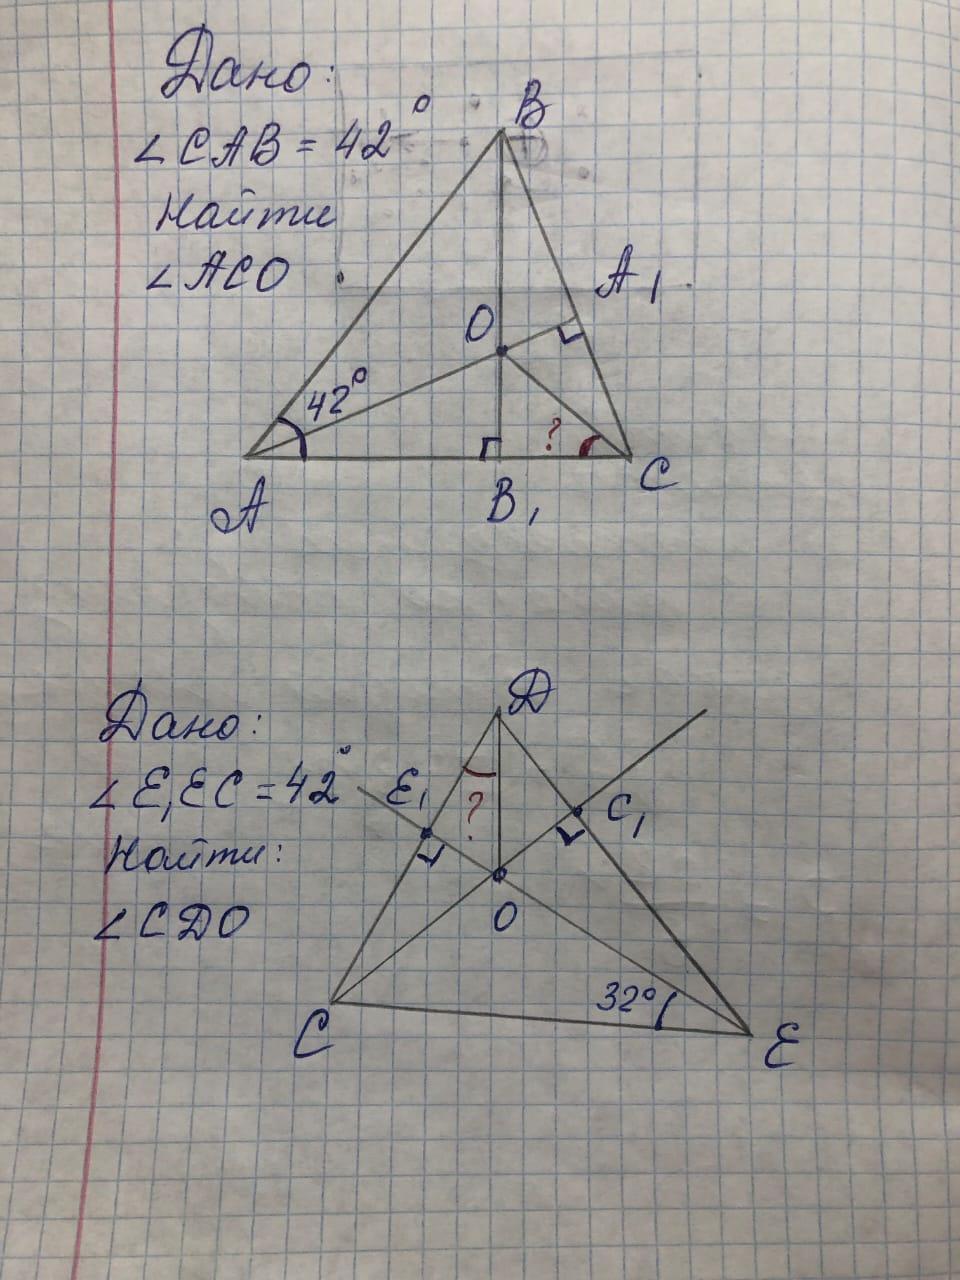 Дано:
∠CAB = 42°
Найти
∠ACO
B
A₁
O
42°
?
A
B₁
C
Дано:
∠E₁EC = 42°
Найти:
∠CДO
Д
E₁
?
C₁
O
32°
C
E